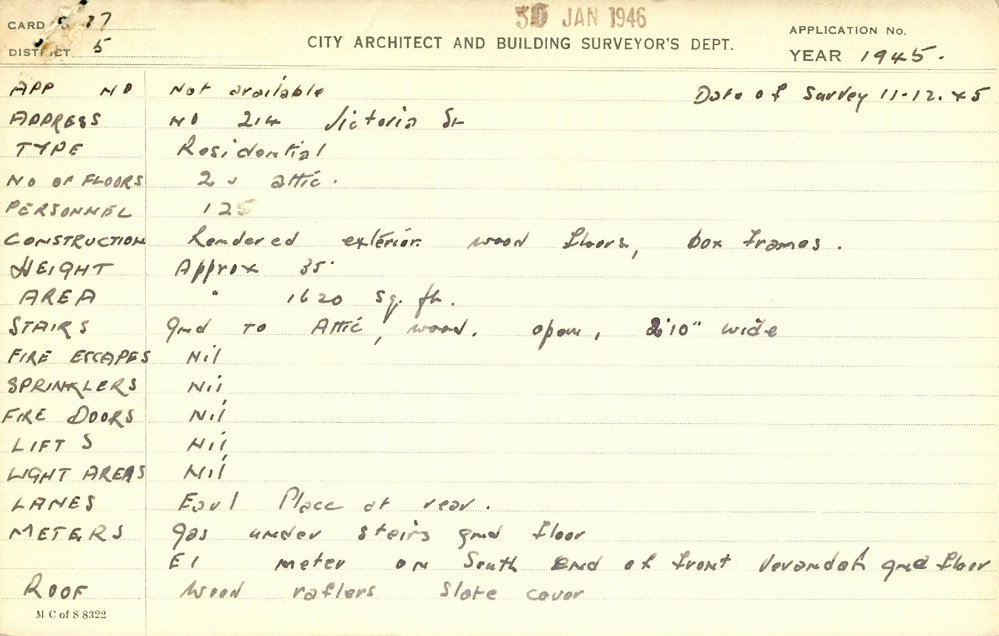 30 JAN 1946
CARD No 37
APPLICATION No.
DISTRICT 5
CITY ARCHITECT AND BUILDING SURVEYOR'S DEPT.
YEAR 1945.
APP NO Not available Date of Survey 11-12.45
ADDRESS NO 214 Victoria St
TYPE Residential
NO OF FLOORS 2 & attic.
PERSONNEL 125
CONSTRUCTION Rendered exterior wood floors, box frames.
HEIGHT Approx 35'
AREA " 1620 sq. ft.
STAIRS Gnd to Attic, wood. open, 2'10" wide
FIRE ESCAPES Nil
SPRINKLERS Nil
FIRE DOORS Nil
LIFTS Nil
LIGHT AREAS Nil
LANES Earl Place at rear.
METERS Gas under stairs gnd floor
El meter on South End of front Verandah gnd floor
ROOF Wood rafters Slate cover
M C of S 8322